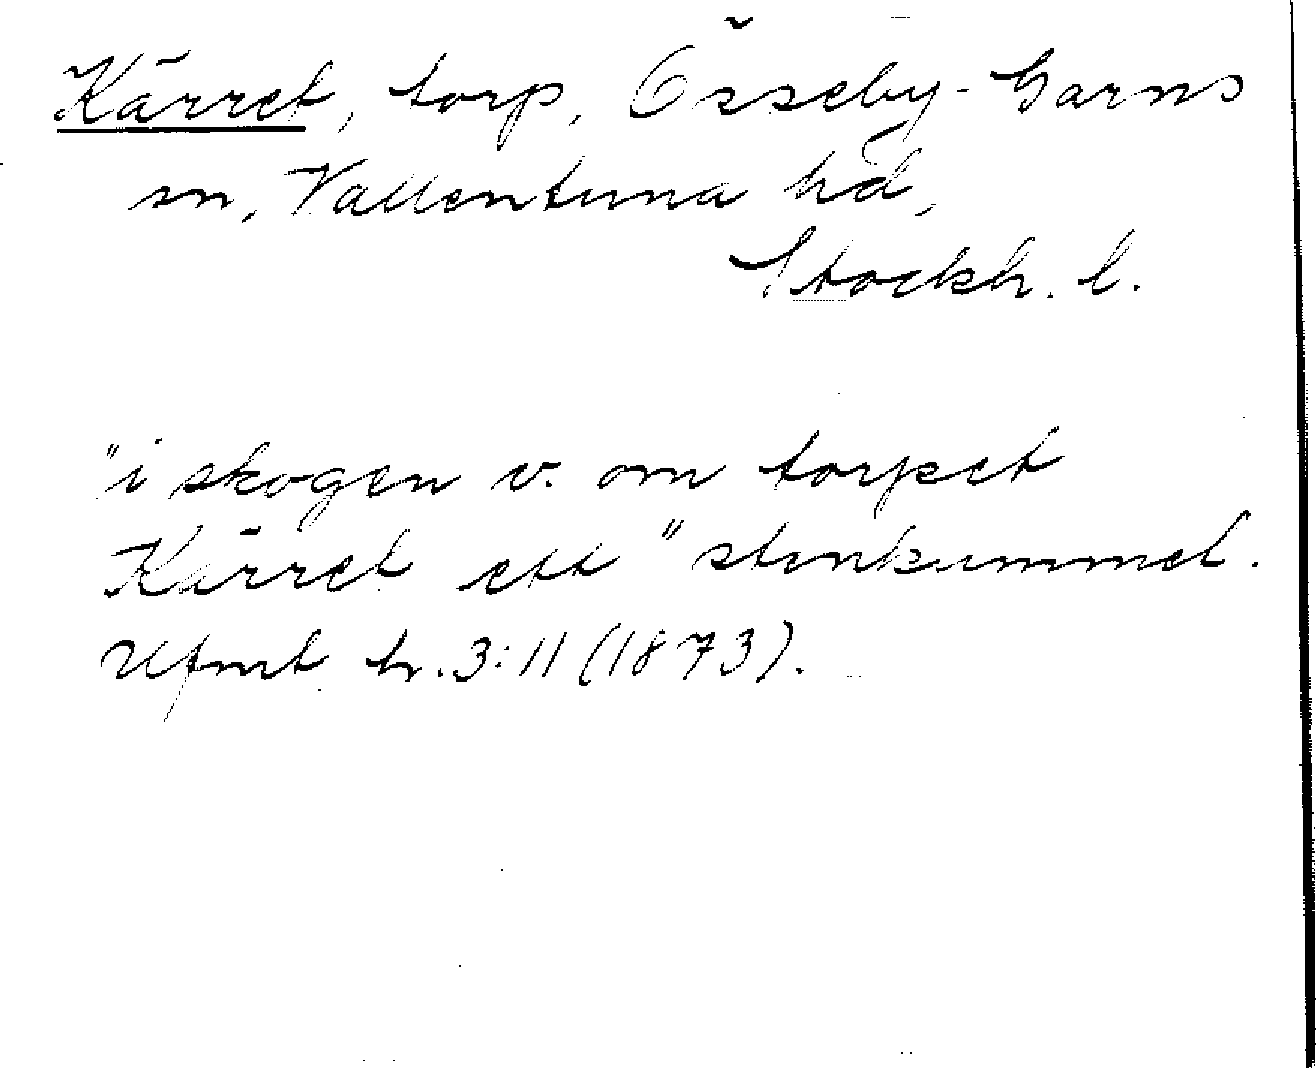 Kärret, torp, Össeby-Garns
sn, Vallentuna hd,
Stockh. l.
"i skogen v. om torpet
Kärret ett" stenkummel.
Ufmt h. 3:11 (1873).